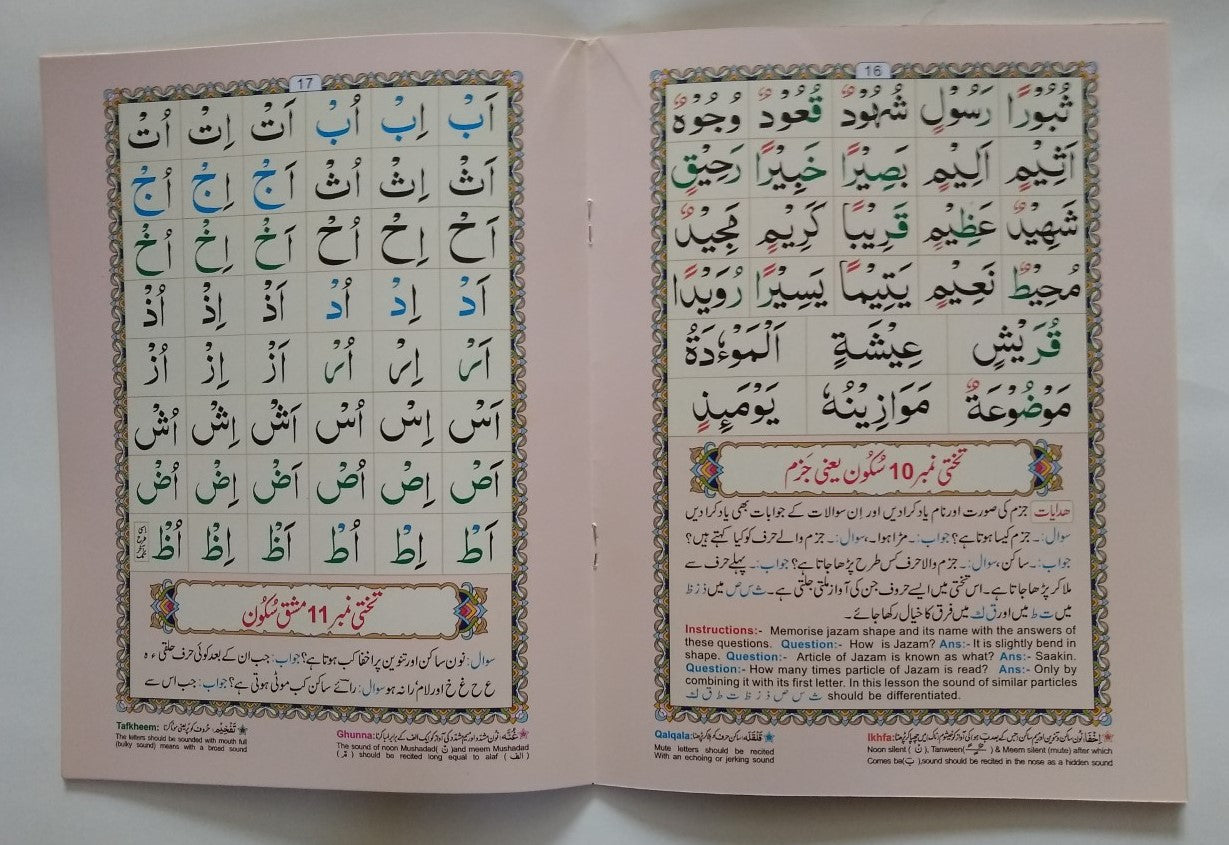 16
ثُبُوْرًا رَسُوْلٍ شُهُوْدٌ قُعُوْدٌ وُجُوْهٌ
اَثِيْمٍ اَلِيْمٍ بَصِيْرًا خَبِيْرًا رَحِيْقٍ
شَهِيْدٌ عَظِيْمٍ قَرِيْبًا كَرِيْمٍ مَجِيْدٌ
مُحِيْطٌ نَعِيْمٍ يَتِيْمًا يَسِيْرًا رُوَيْدًا
قُرَيْشٍ عِيْشَةٍ اَلْمَوْءٗدَةُ
مَوْضُوْعَةٌ مَوَازِيْنُهٗ يَوْمَىِٕذٍ
تختی نمبر 10 سُکُون یعنی جَزم
ھدایات جزم کی صورت اور نام یاد کرادیں اور اِن سوالات کے جوابات بھی یاد کرادیں
سوال:۔ جزم کیسا ہوتا ہے؟ جواب:۔ مڑا ہوا۔ سوال:۔ جزم والے حرف کو کیا کہتے ہیں؟
جواب:۔ ساکن، سوال:۔ جزم والا حرف کس طرح پڑھا جاتا ہے؟ جواب:۔ پہلے حرف سے
ملا کر پڑھا جاتا ہے۔ اس تختی میں ایسے حروف جن کی آواز ملتی جلتی ہے۔ ث س ص میں ذ ز ظ
میں ت ط میں اور ق ک میں فرق کا خیال رکھا جائے۔
Instructions:- Memorise jazam shape and its name with the answers of
these questions. Question:- How is Jazam? Ans:- It is slightly bend in
shape. Question:- Article of Jazam is known as what? Ans:- Saakin.
Question:- How many times particle of Jazam is read? Ans:- Only by
combining it with its first letter. In this lesson the sound of similar particles
ث س ص ذ ز ظ ت ط ق ک should be differentiated.
Ikhfa:
Noon silent ( نْ ), Tanween( ) & Meem silent (mute) after which
Comes ba( بَ ),sound should be recited in the nose as a hidden sound
Qalqala: قَلْقَلَه:
Mute letters should be recited
With an echoing or jerking sound
17
اَبْ اِبْ اُبْ اَتْ اِتْ اُتْ
اَثْ اِثْ اُثْ اَجْ اِجْ اُجْ
اَحْ اِحْ اُحْ اَخْ اِخْ اُخْ
اَدْ اِدْ اُدْ اَذْ اِذْ اُذْ
اَرْ اِرْ اُرْ اَزْ اِزْ اُزْ
اَسْ اِسْ اُسْ اَشْ اِشْ اُشْ
اَصْ اِصْ اُصْ اَضْ اِضْ اُضْ
اَطْ اِطْ اُطْ اَظْ اِظْ اُظْ
تختی نمبر 11 مشق سُکُون
سوال: نون ساکن اور تنوین پر اخفا کب ہوتا ہے؟ جواب: جب ان کے بعد کوئی حرف حلقی ء ہ
ع ح غ خ اور لام' را نہ ہو سوال: رائے ساکن کب موٹی ہوتی ہے؟ جواب: جب اس سے
Ghunna: غُنَّه:
The sound of noon Mushadad( نّ )and meem Mushadad
( مّ ) should be recited long equal to alaf ( الف )
Tafkheem: تَفْخِيْم:
The letters should be sounded with mouth full
(bulky sound) means with a broad sound